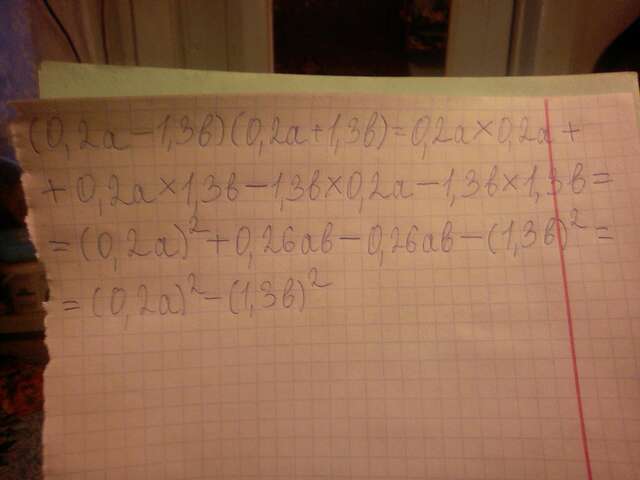 (0,2а-1,3в)(0,2а+1,3в)=0,2а×0,2а+
+0,2а×1,3в-1,3в×0,2а-1,3в×1,3в=
=(0,2а)²+0,26ав-0,26ав-(1,3в)²=
=(0,2а)²-(1,3в)²